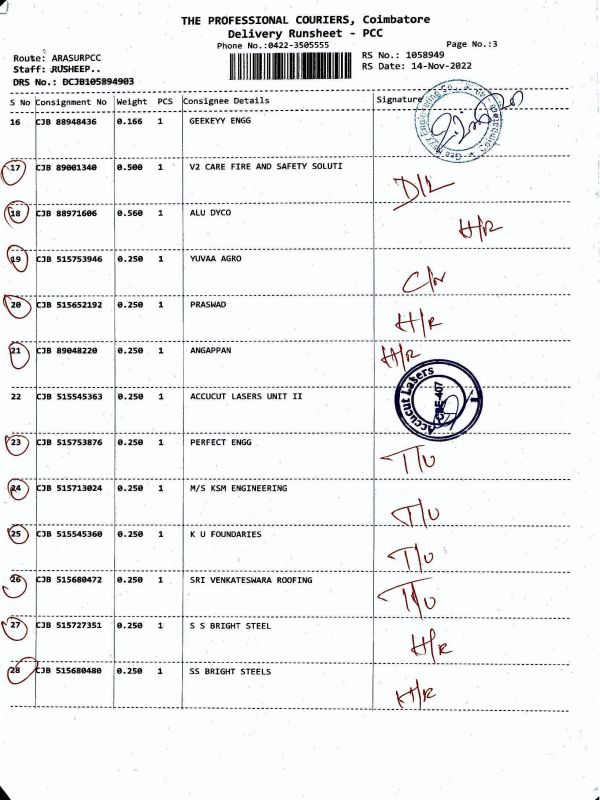 THE PROFESSIONAL COURIERS, Coimbatore
Delivery Runsheet - PCC
Phone No.:0422-3505555
Page No.:3
Route: ARASURPCC
RS No.: 1058949
Staff: RUSHEEP..
RS Date: 14-Nov-2022
DRS No.: DCJB105894903
S No Consignment No Weight PCS Consignee Details Signature
16 CJB 88948436 0.166 1 GEEKEYY ENGG
17 CJB 89001340 0.500 1 V2 CARE FIRE AND SAFETY SOLUTI D/L
18 CJB 88971606 0.560 1 ALU DYCO H/R
19 CJB 515753946 0.250 1 YUVAA AGRO
20 CJB 515652192 0.250 1 PRASWAD H/R
21 CJB 89048220 0.250 1 ANGAPPAN H/R
22 CJB 515545363 0.250 1 ACCUCUT LASERS UNIT II
Accucut Lasers
CBE-407
23 CJB 515753876 0.250 1 PERFECT ENGG T/U
24 CJB 515713024 0.250 1 M/S KSM ENGINEERING T/U
25 CJB 515545360 0.250 1 K U FOUNDARIES T/U
26 CJB 515680472 0.250 1 SRI VENKATESWARA ROOFING T/U
27 CJB 515727351 0.250 1 S S BRIGHT STEEL H/R
28 CJB 515680480 0.250 1 SS BRIGHT STEELS H/R